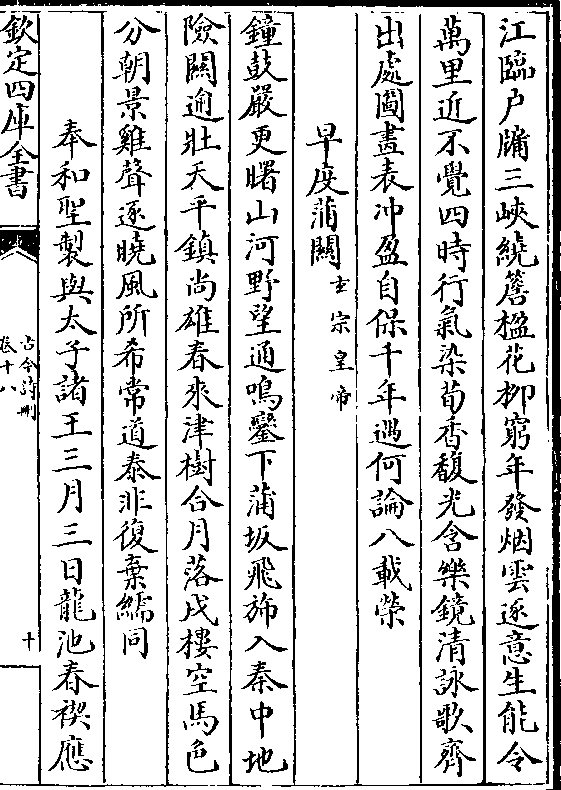 江臨户牖三峽繞簷楹花栁窮年發烟雲逐意生能令
萬里近不覺四時行氣染荀香馥光含樂鏡清詠歌齊
出處圖畫表冲盈自保千年遇何論八載榮
早度蒲關玄宗皇帝
鐘鼓嚴更曙山河野望通鳴鑾下蒲坂飛斾入秦中地
險關逾壯天平鎮尚雄春來津樹合月落戍樓空馬色
分朝景雞聲逐曉風所希常道泰非復棄繻同
奉和聖製與太子諸王三月三日龍池春禊應
欽定四庫全書
古今詩刪
卷十八
十